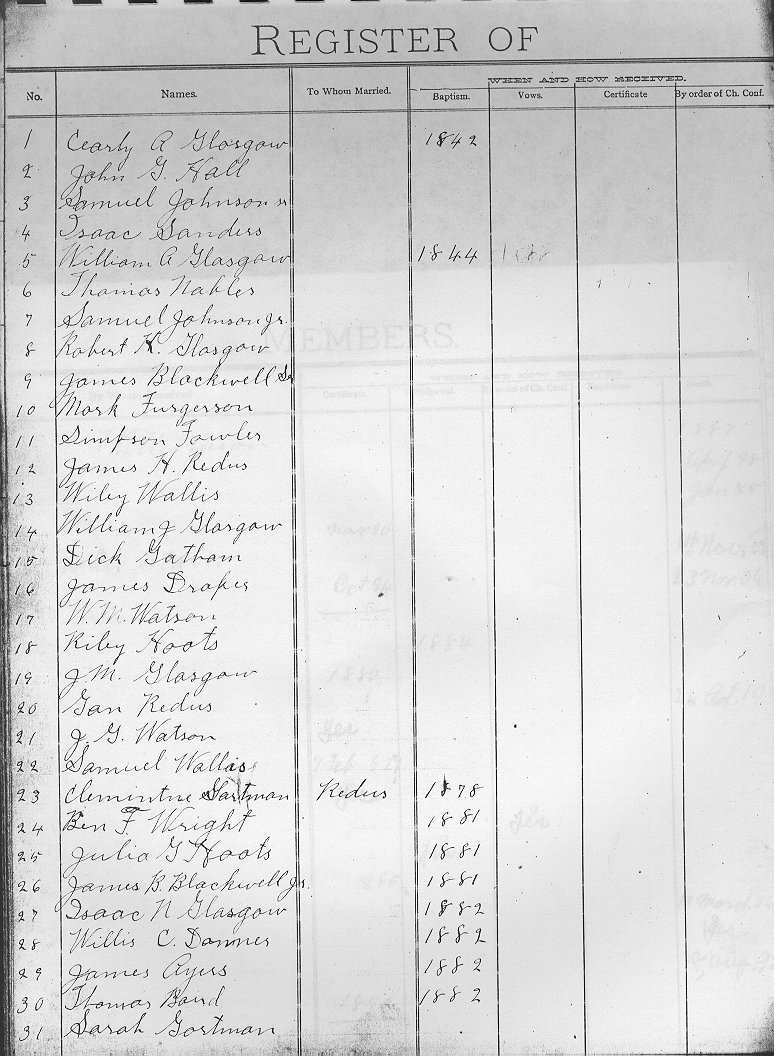 REGISTER OF
WHEN AND HOW RECEIVED.
No. Names. To Whom Married. Baptism. Vows. Certificate By order of Ch. Conf.
1 Cearly A Glasgow 1842
2 John G. Hall
3 Samuel Johnson sr
4 Isaac Sanders
5 William A Glasgow 1844
6 Thomas Nables
7 Samuel Johnson Jr.
MEMBERS.
8 Robert H. Glasgow
9 James Blackwell Sr
10 Mark Furgerson
11 Simpson Fowler
12 James H. Redus
13 Wiley Wallis
14 William J Glasgow
15 Dick Gatham
16 James Draper
17 W. M. Watson
18 Riley Hoots 1884
19 J. M. Glasgow
20 Gan Redus
21 J. G. Watson
22 Samuel Wallis
23 Clemintne Gartman Redus 1878
24 Ben F Wright 1881
25 Julia G Hoots 1881
26 James B. Blackwell Jr. 1881
27 Isaac N Glasgow 1882
28 Willis C. Danner 1882
29 James Ayers 1882
30 Thomas Baird 1882
31 Sarah Gortman